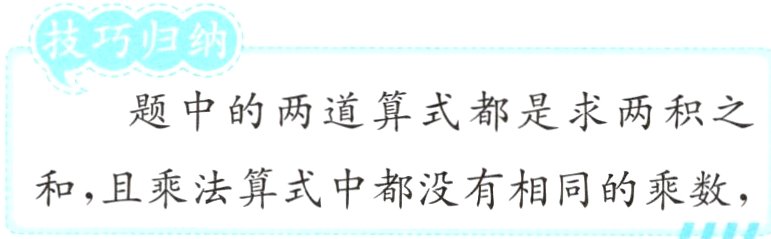 技巧归纳
题中的两道算式都是求两积之
和,且乘法算式中都没有相同的乘数,